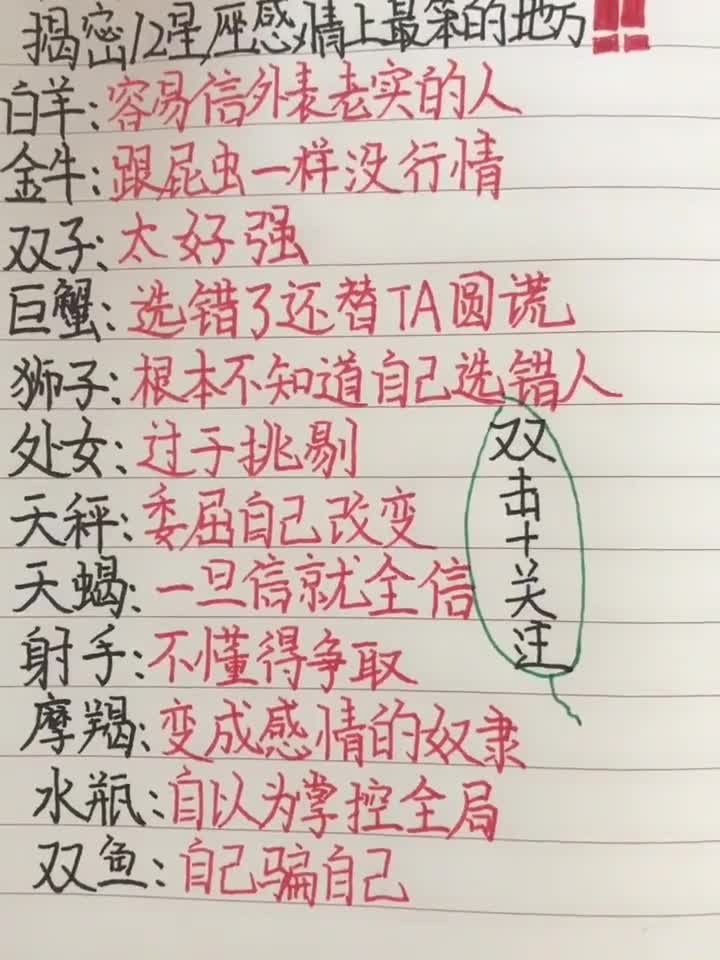 揭密12星座感情上最笨的地方!!
白羊:容易信外表老实的人
金牛:跟屁虫一样没行情
双子:太好强
巨蟹:选错了还替TA圆谎
狮子:根本不知道自己选错人
处女:过于挑剔
天秤:委屈自己改变
天蝎:一旦信就全信
射手:不懂得争取
摩羯:变成感情的奴隶
水瓶:自以为掌控全局
双鱼:自己骗自己
双击+关注